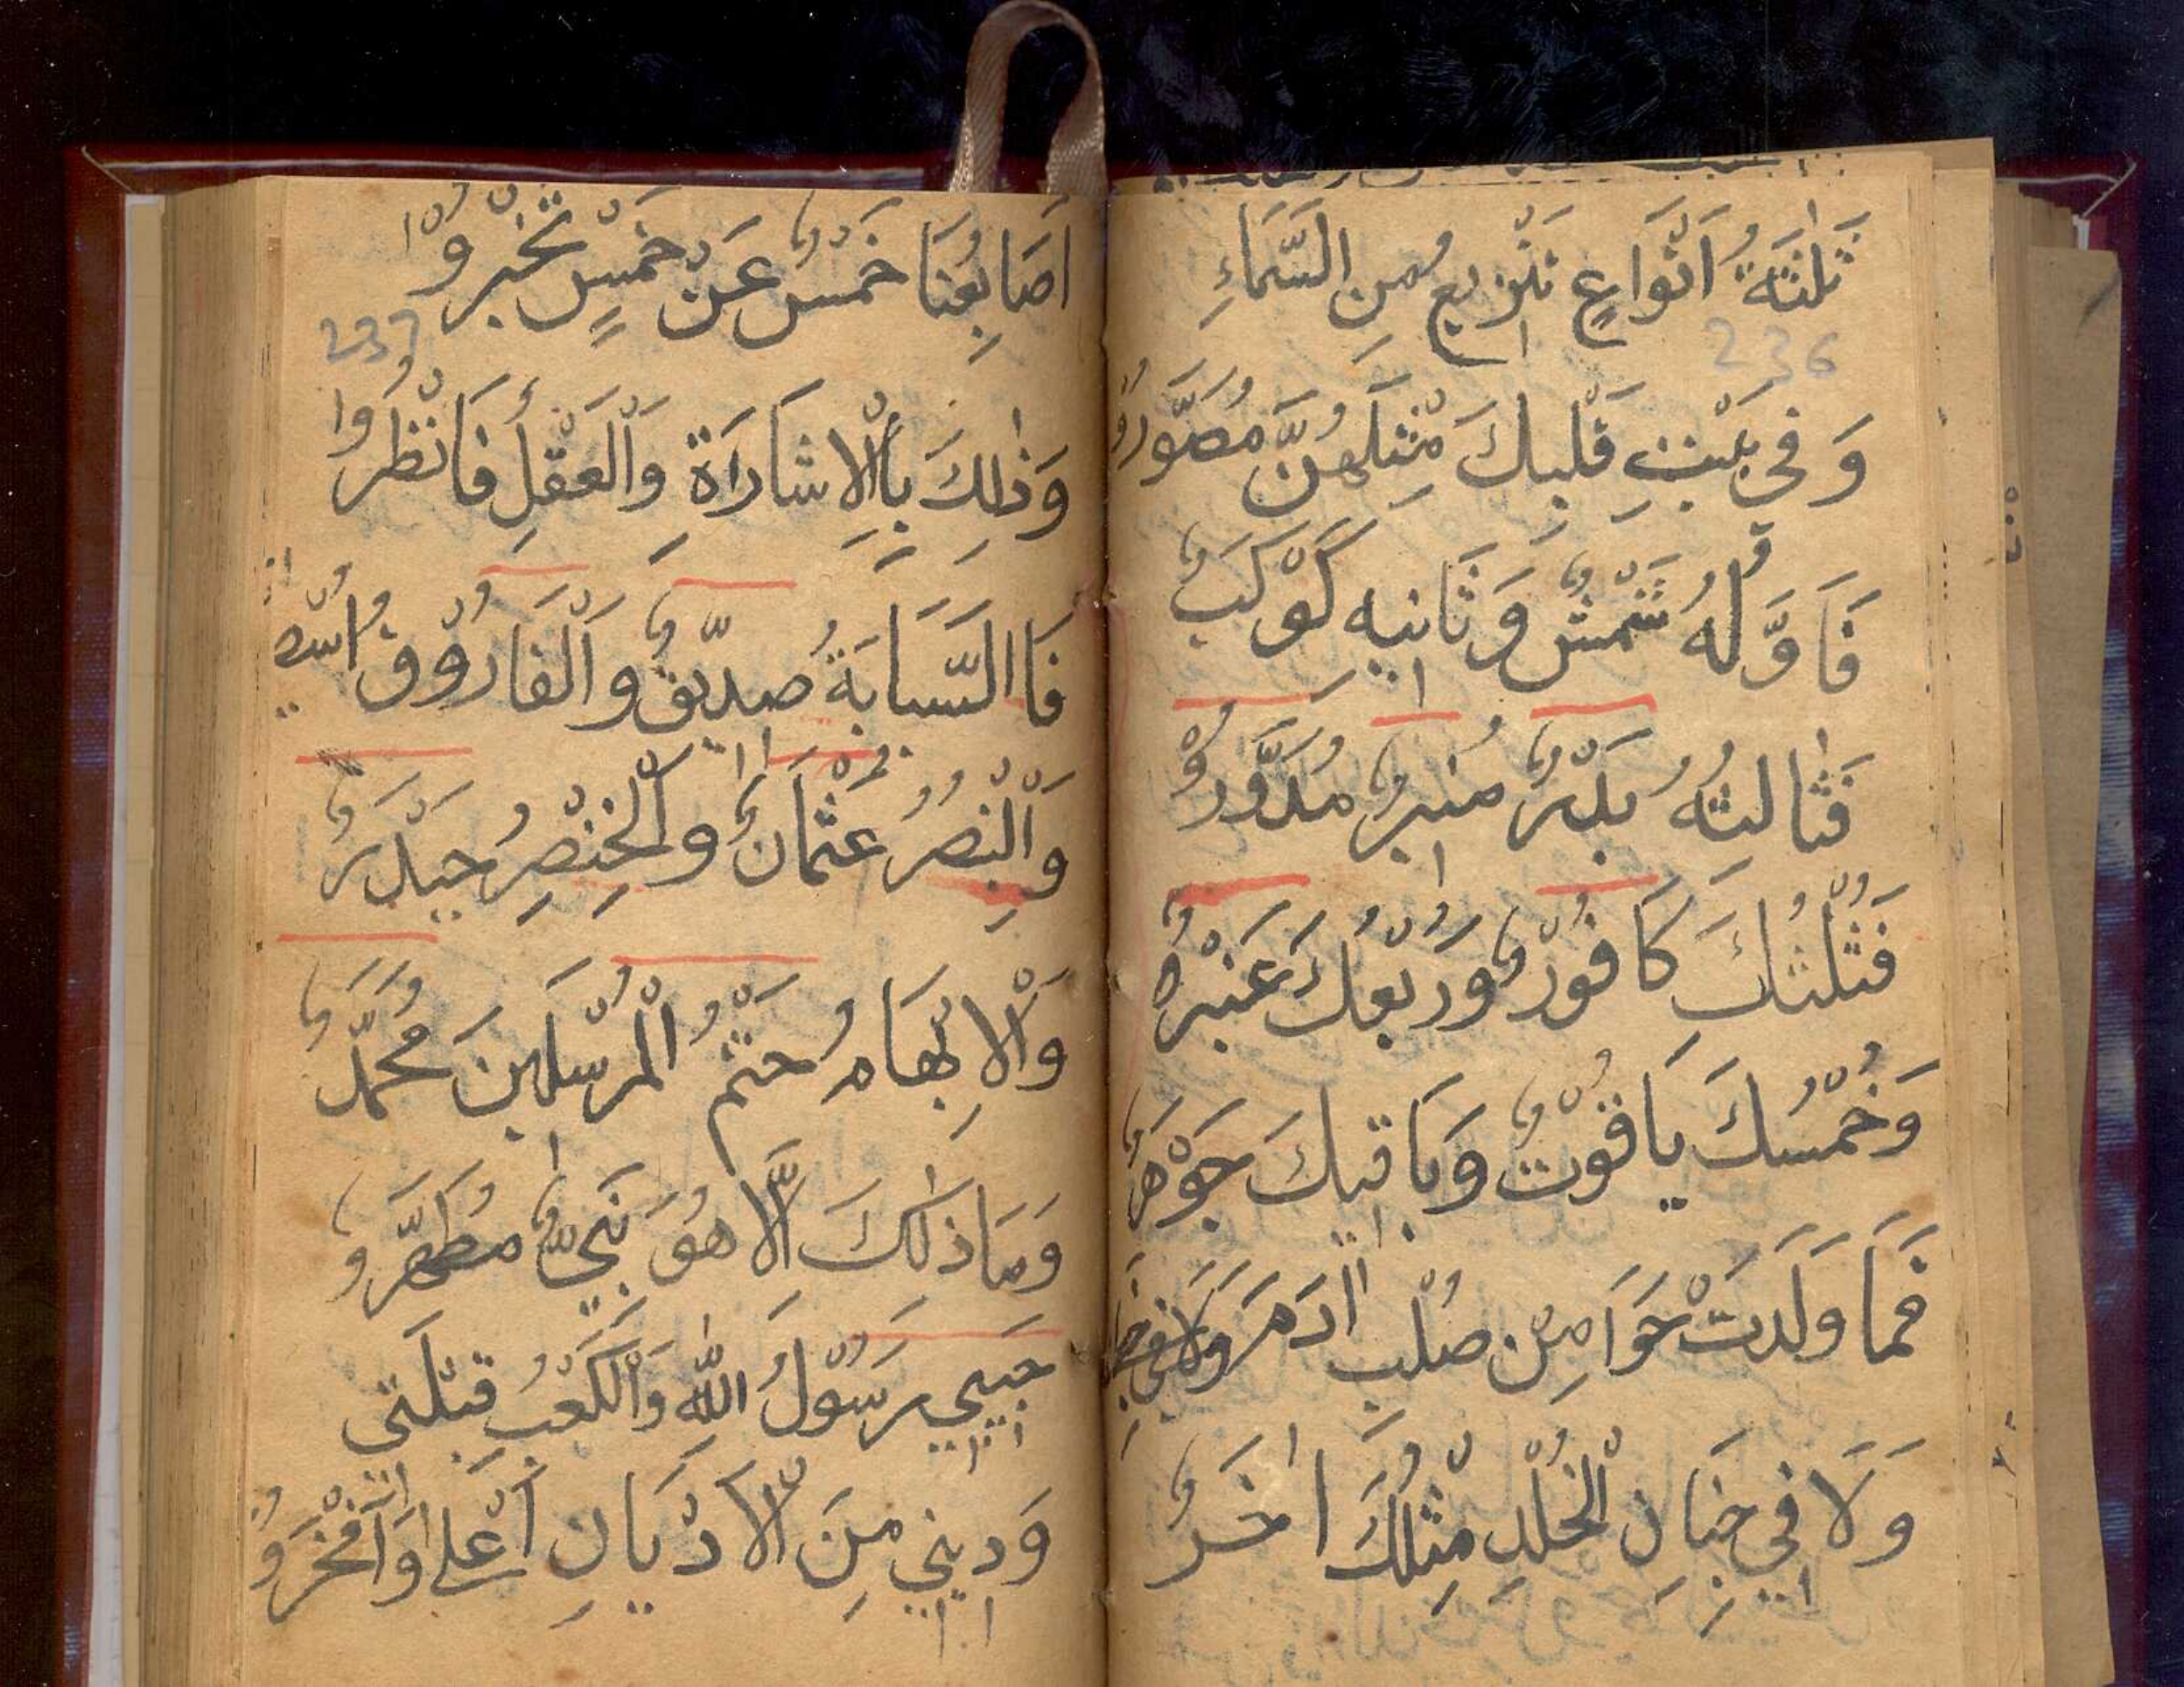 236
ثَلٰثَةُ اَنْوَاعٍ تَزْيِيعُ مِنِ السَّمَاءِ
وَفِي بَيْتِ قَلْبِكَ مِثْلَهُنَّ مُصَوَّرُوْ
فَاَوَّلُهُ شَمْسٌ وَثَانِيهِ كَوْكَبٌ
فَثَالِثُهُ بَدْرٌ مُنِيرٌ مُدَوَّرُوْ
فَثُلْثُكَ كَافُوْرٌ وَرُبْعُكَ عَنْبَرٌ
وَخُمْسُكَ يَاقُوْتٌ وَبَاقِيكَ جَوْهَرٌ
فَمَا وَلَدَتْ حَوَا مِنْ صُلْبِ اٰدَمَ وَلَا فِي
وَلَا فِي جِنَانِ الْخُلْدِ مِثْلُكَ اٰخَرُ
237
اَصَابِعُنَا خَمْسٌ عَنْ خَمْسٍ تُخْبِرُوْا
وَذٰلِكَ بِالْاِشَارَاةِ وَالْعَقْلِ فَانْظُرُوا
فَاالسَّبَابَةُ صِدِّيقٌ وَالْفَارُوْقُ اسْمُهُ
وَالْبِنْصِرُ عُثْمَانٌ وَالْخِنْصِرُ حَيْدَرٌ
وَالْاِبْهَامُ خَتْمُ الْمُرْسَلِينَ مُحَمَّدٌ
وَمَا ذٰلِكَ اِلَّا هُوَ نَبِيٌّ مُطَهَّرٌو
حَبِيبِي رَسُوْلُ اللّٰهِ وَالْكَعْبَ قِبْلَتِي
وَدِينِي مِنَ الْاَدْيَانِ اَعْلٰى وَاَفْخَرُوْ